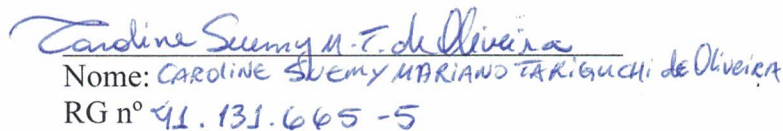 Caroline Suemy M. T. de Oliveira
Nome: CAROLINE SUEMY MARIANO TARIGUCHI de OliveiRA
RG nº 41.131.665-5